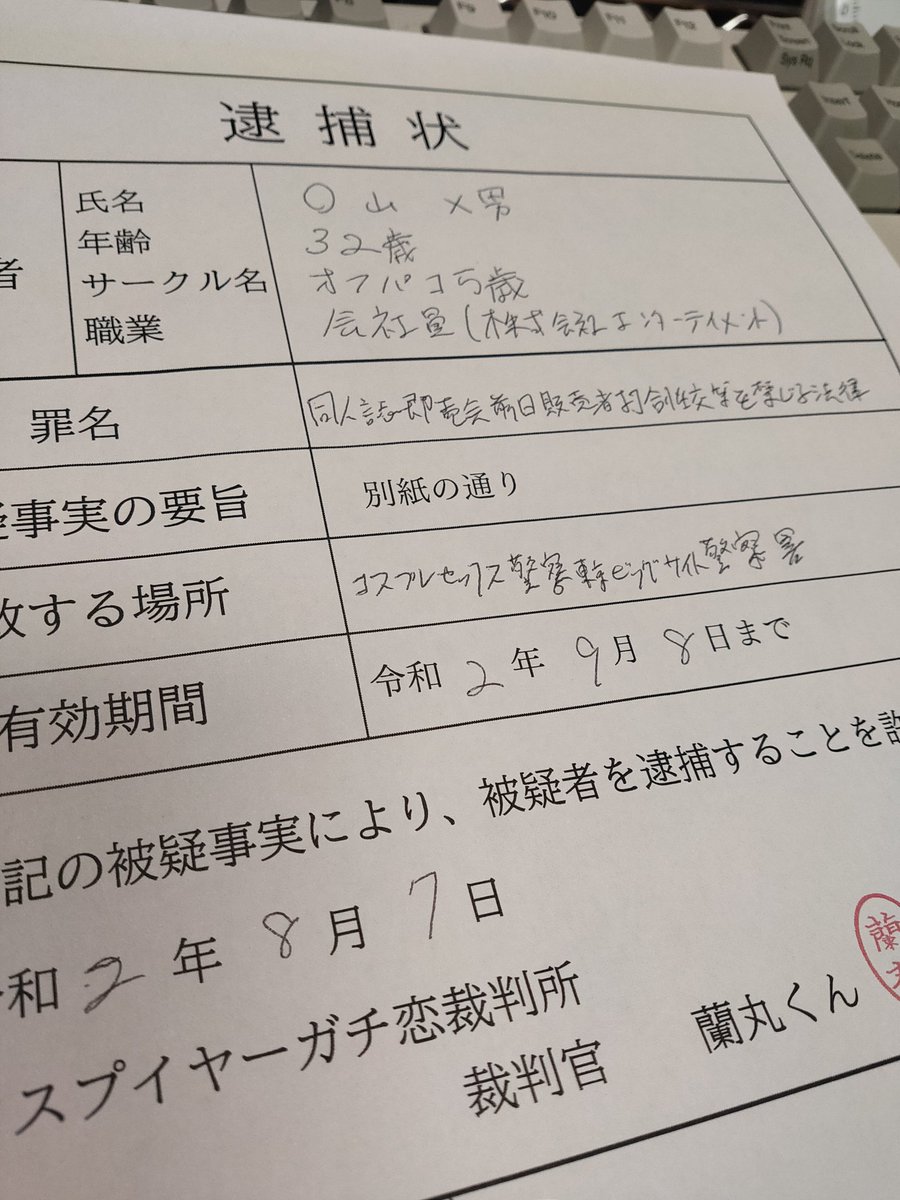 F9
F10
F11
F12
Print
Screen
Sys Rq
Scroll
Lock
Insert
Delete
逮捕状
者
氏名 ○山 ×男
年齢 32歳
サークル名 オフパコ5歳
職業 会社員(株式会社エンターテイメント)
罪名 同人誌即売会前日販売者打創性交等を禁じる法律
疑事実の要旨 別紙の通り
する場所 コスプレセックス警察東京ビッグサイト警察署
有効期間 令和2年9月8日まで
記の被疑事実により、被疑者を逮捕することを許
和2年8月7日
スプイヤーガチ恋裁判所
裁判官 蘭丸くん
蘭